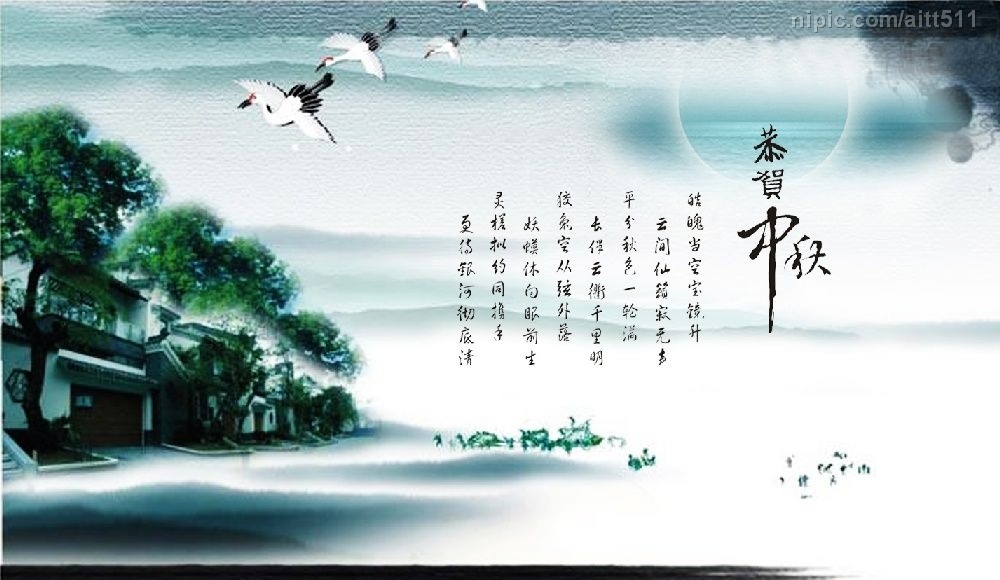 nipic.com/aitt511
恭贺
中秋
皓魄当空宝镜升
云间仙籁寂无声
平分秋色一轮满
长伴云衢千里明
狡兔空从弦外落
妖蟆休向眼前生
灵槎拟约同携手
更待银河彻底清